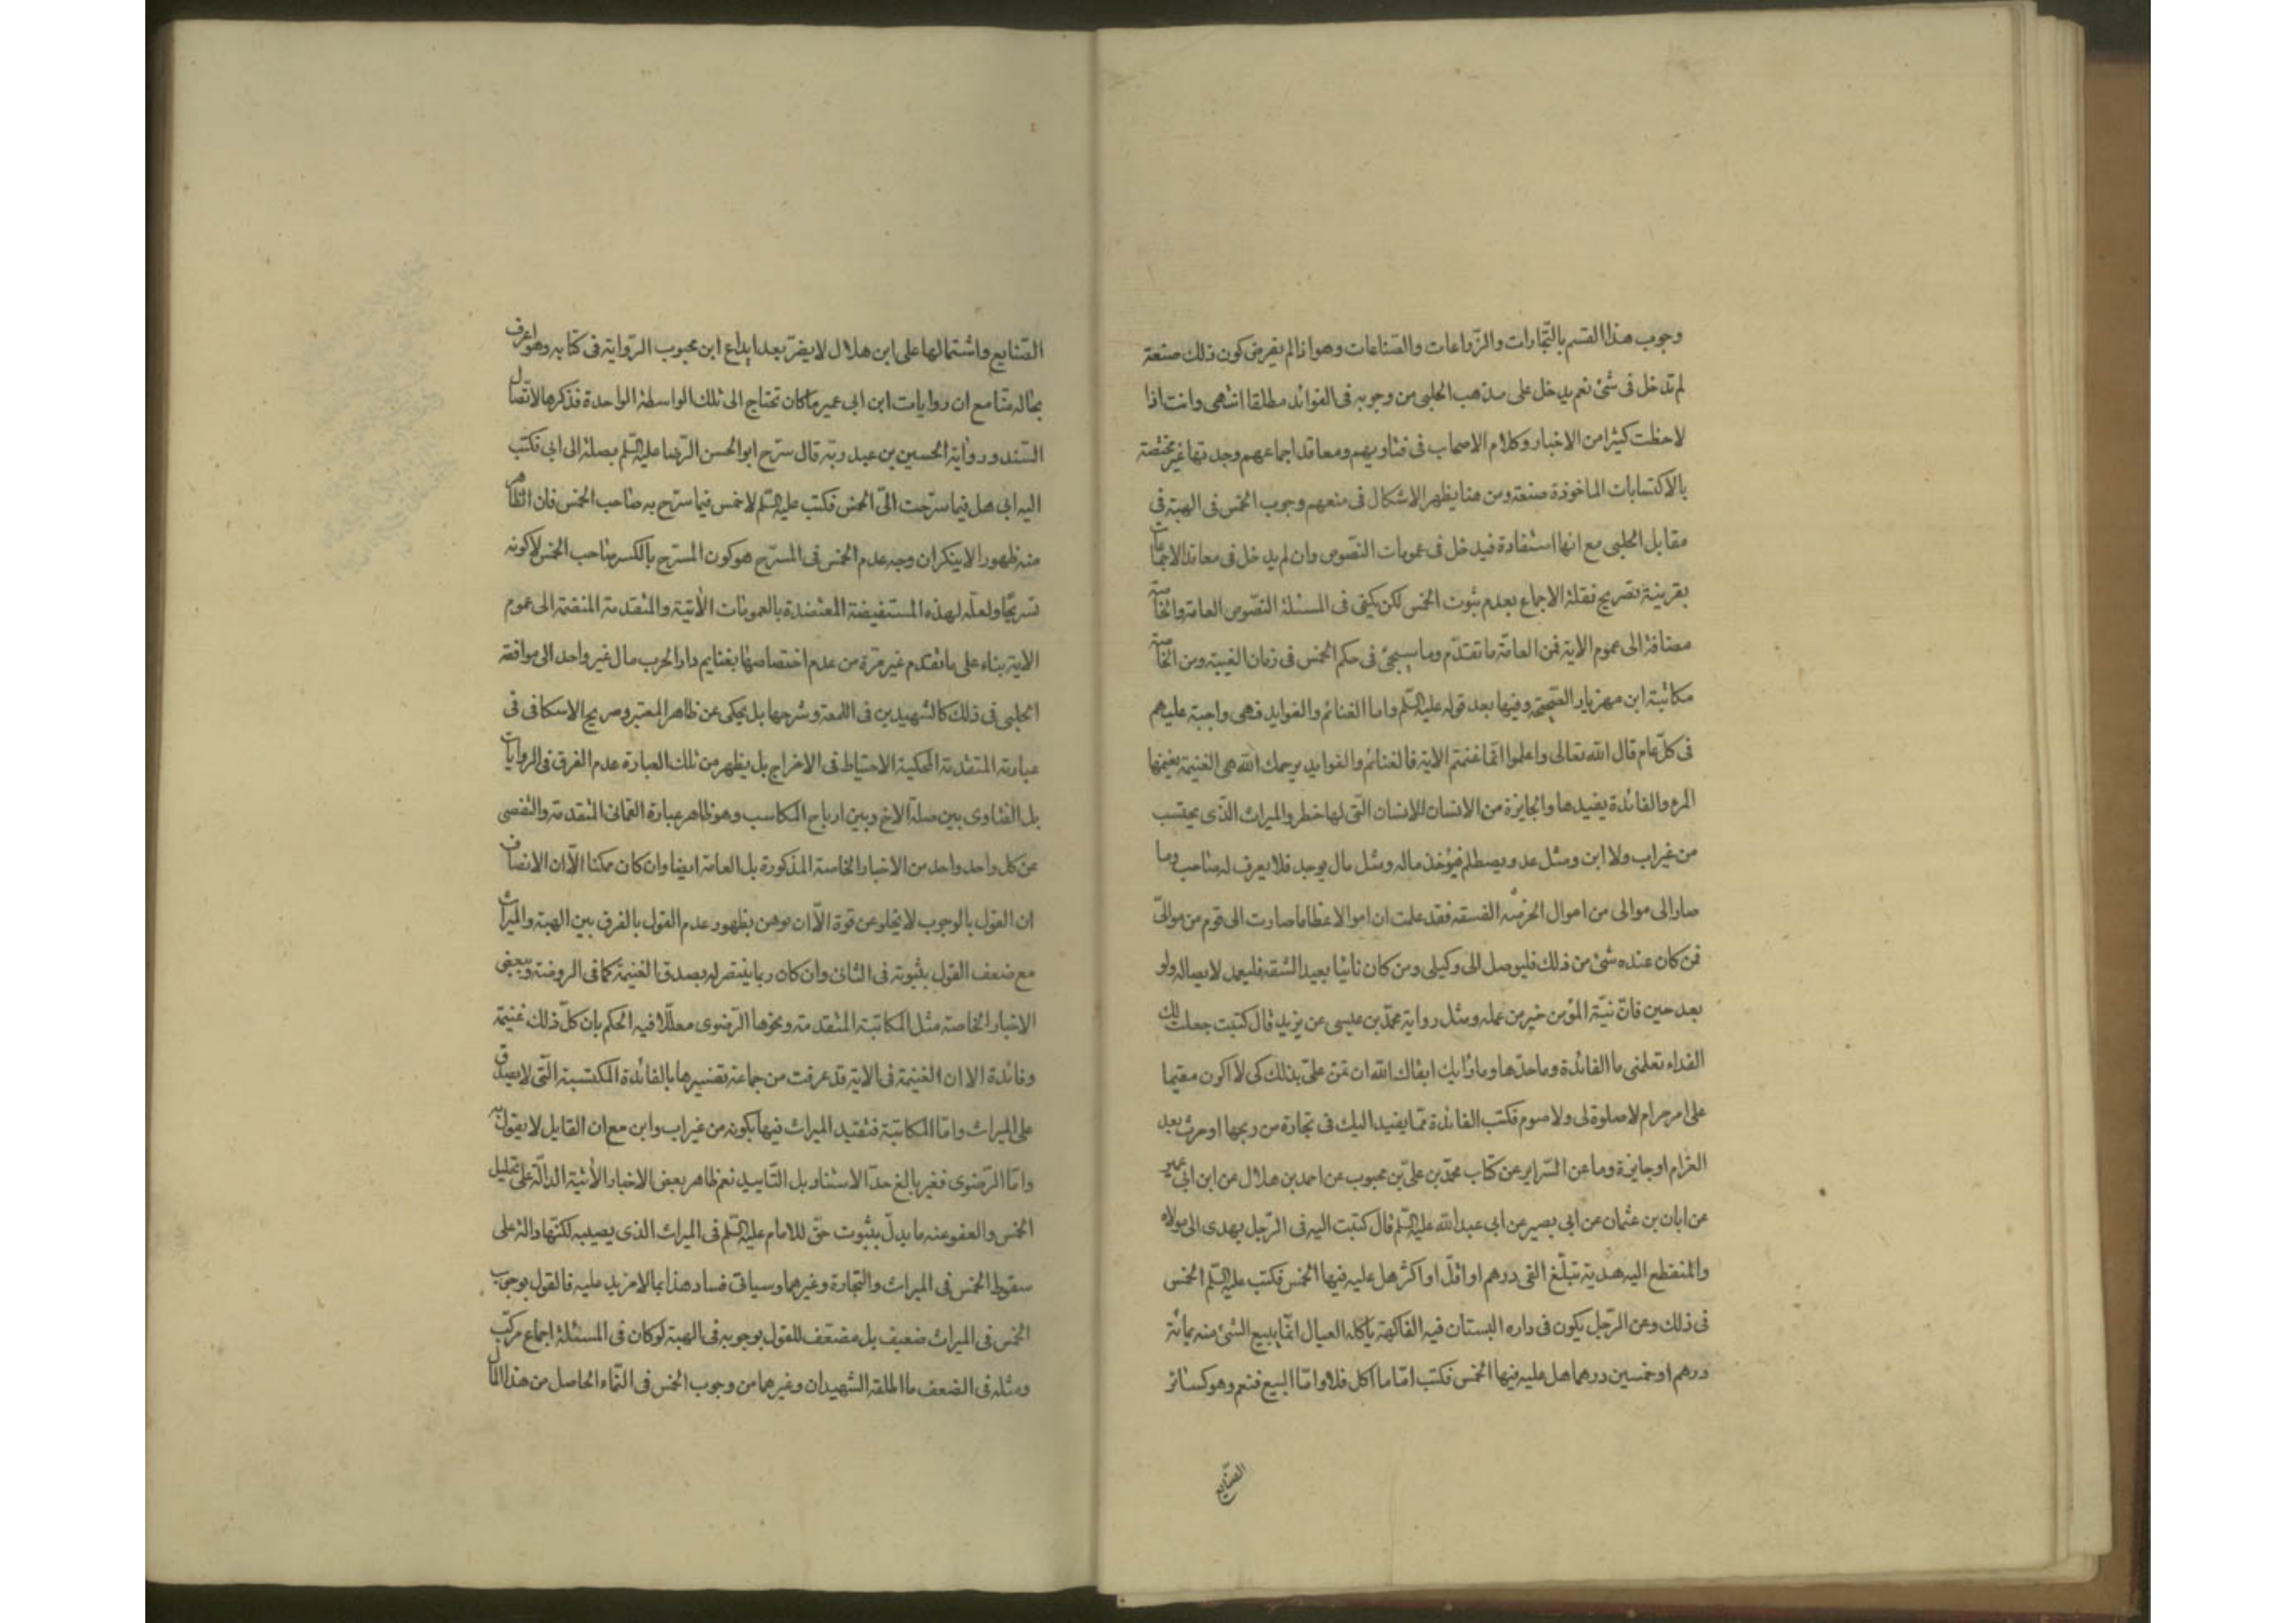 وجوب هذا القسم بالتّجارات والزّراعات والصّناعات وهو اذا لم يفرض كون ذلك صنعة
لم تدخل فى شئ نعم يدخل على مذهب الحلبى من وجوبه فى الفوائد مطلقا انتهى وانت اذا
لاحظت كثيرا من الاخبار وكلام الاصحاب فى فتاويهم ومعاقد اجماعهم وجدتها غير مختصة
بالاكتسابات الماخوذة صنعة ومن هنا يظهر الاشكال فى منعهم وجوب الخمس فى الهبة فى
مقابل الحلبى مع انها استفادة فيدخل فى عمومات النّصوص وان لم يدخل فى معاقد الاجماعات
بقرينة تصريح نقلة الاجماع بعدم ثبوت الخمس لكن يكفى فى المسئلة النّصوص العامة والخاصّة
مضافة الى عموم الاية فمن العامّة ما تقدّم وما سيجئ فى حكم الخمس فى زمان الغيبة ومن الخاصّة
مكاتبة ابن مهزيار الصّحيحة وفيها بعد قوله عليه السّلم واما الغنائم والفوايد فهى واجبة عليهم
فى كلّ عام قال الله تعالى واعلموا انّما غنمتم الاية فالغنائم والفوايد يرحمك الله هى الغنيمة يغنمها
المرء والفائدة يفيدها والجايزة من الانسان للانسان الّتى لها خطر والميراث الّذى يحتسب
من غير اب ولا ابن ومثل عدو يصطلم فيؤخذ ماله ومثل مال يوجد فلا يعرف له صاحب وما
صار الى موالى من اموال الخرميّه الفسقه فقد علمت ان اموالا عظاما صارت الى قوم من موالىّ
فمن كان عنده شئ من ذلك فليوصل الى وكيلى ومن كان نائيا بعيد الشقه فليعمد لايصاله ولو
بعد حين فانّ نيّة المؤمن خير من عمله ومثل رواية محمّد بن عيسى عن يزيد قال كتبت جعلت لك
الفداء تعلمنى ما الفائدة وما حدّها وما رأيك ابقاك الله ان تمنّ علىّ بذلك كى لا اكون مقيما
على امر حرام لا صلوة لى ولا صوم فكتب الفائدة ممّا يفيد اليك فى تجارة من ربحها او حرث بعد
الغرام او جايزة وما عن السّراير عن كتاب محمّد بن علىّ بن محبوب عن احمد بن هلال عن ابن ابى عمير
عن ابان بن عثمان عن ابى بصير عن ابى عبد الله عليه السّلم قال كتبت اليه فى الرّجل يهدى الى مولاه
والمنقطع اليه هديّة تبلّغ الفى درهم او اقلّ او اكثر هل عليه فيها الخمس فكتب عليه السّلم الخمس
فى ذلك وعن الرّجل يكون فى داره البستان فيه الفاكهة ياكله العيال انّما يبيع الشئ منه بمائة
درهم او خمسين درهما هل عليه فيها الخمس فكتب امّا ما اكل فلا وامّا البيع فنعم وهو كسائر
الصّنايع
الصّنايع واشتمالها على ابن هلال لا يضرّ بعد ايداع ابن محبوب الرّواية فى كتابه وهو اعرف
بحاله منّا مع ان روايات ابن ابى عمير ما كان تحتاج الى تلك الواسطة الواحدة فذكرها لاتّصال
السّند ورواية الحسين بن عبد ربّه قال سرّح ابو الحسن الرّضا عليه السّلم بصلة الى ابى فكتب
اليه ابى هل فيما سرّحت الىّ الخمس فكتب عليه السّلم لا خمس فيما سرّح به صاحب الخمس فان الظّاهر
منه ظهورا لا ينكر ان وجه عدم الخمس فى المسرّح هو كون المسرّح بالكسر صاحب الخمس لا كونه
تسريحًا ولعلّه لهذه المستفيضة المعتضدة بالعمومات الأتية والمتقدمة المنضمّة الى عموم
الاية بناء على ما تقدم غير مرّة من عدم اختصاصها بغنايم دار الحرب مال غير واحد الى موافقة
الحلبى فى ذلك كالشهيدين فى اللمعة وشرحها بل يحكى عن ظاهر المعتبر وصريح الاسكافى فى
عبارته المتقدمة المحكية الاحتياط فى الاخراج بل يظهر من تلك العبارة عدم الفرق فى الروايات
بل الفتاوى بين صلة الاخ وبين ارباح المكاسب وهو ظاهر عبارة العمانى المتقدمة والتفصى
عن كل واحد واحد من الاخبار الخاصة المذكورة بل العامة ايضا وان كان ممكنا الّا ان الانصاف
ان القول بالوجوب لا يخلو عن قوة الّا ان يوهن بظهور عدم القول بالفرق بين الهبة والميراث
مع ضعف القول بثبوته فى الثانى وان كان ربما ينتصر له بصدق الغنيمة كما فى الروضة وببعض
الاخبار الخاصة مثل المكاتبة المتقدمة ونحوها الرّضوى معلّلا فيه الحكم بان كلّ ذلك غنيمة
وفائدة الا ان الغنيمة فى الاية قد عرفت من جماعة تفسيرها بالفائدة المكتسبة الّتى لا يصدق
على الميراث وامّا المكاتبة فتقييد الميراث فيها بكونه من غير اب وابن مع ان القايل لا يقول به
وامّا الرّضوى فغير بالغ حدّ الاستناد بل التّاييد نعم ظاهر بعض الاخبار الأتية الدالّة على تحليل
الخمس والعفو عنه ما يدلّ بثبوت حقّ للامام عليه السّلم فى الميراث الذى يصيبه لكنّها دالة على
سقوط الخمس فى الميراث والتجارة وغيرهما وسياتى فساد هذا بما لا مزيد عليه فالقول بوجوب
الخمس فى الميراث ضعيف بل مضعّف للقول بوجوبه فى الهبة لو كان فى المسئلة اجماع مركّب
ومثله فى الضعف ما اطلقه الشهيدان وغيرهما من وجوب الخمس فى النّماء الحاصل من هذا المال